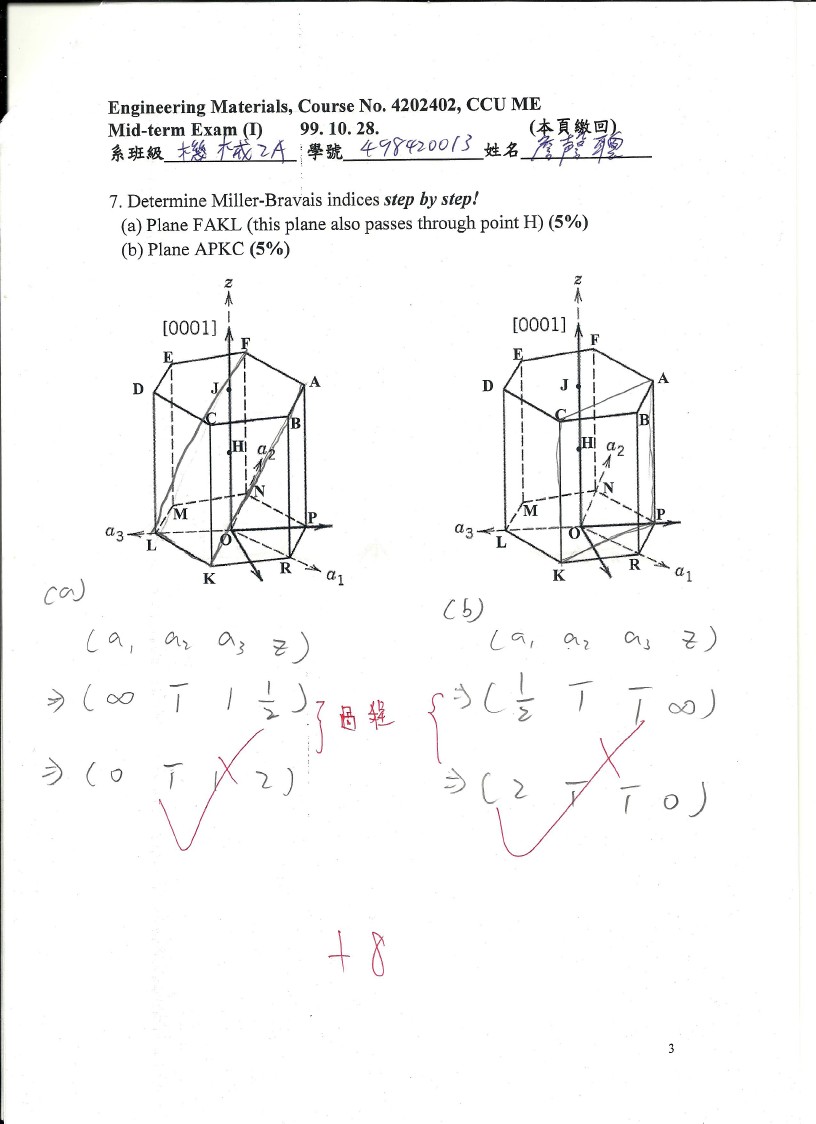 Engineering Materials, Course No. 4202402, CCU ME
Mid-term Exam (I) 99. 10. 28. (本頁繳回)
系班級 機械2A 學號 498420013 姓名 詹謦聰
7. Determine Miller-Bravais indices step by step!
(a) Plane FAKL (this plane also passes through point H) (5%)
(b) Plane APKC (5%)
z
[0001]
E
F
D
J
A
C
B
H
a2
N
M
P
a3
L
O
K
R
a1
z
[0001]
E
F
D
J
A
C
B
H
a2
N
M
P
a3
L
O
K
R
a1
(a)
(a1 a2 a3 z)
⇒ (∞ 1̅ 1 1/2)
過程
⇒ (0 1̅ 1 2)
(b)
(a1 a2 a3 z)
⇒ (1/2 1̅ 1̅ ∞)
⇒ (2 1̅ 1̅ 0)
+8
3